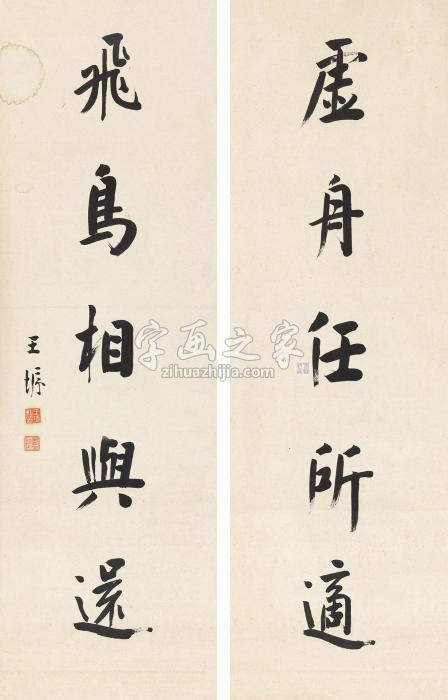 虛舟任所適
飛鳥相與還
王垿
字画之家
zihuazhijia.com